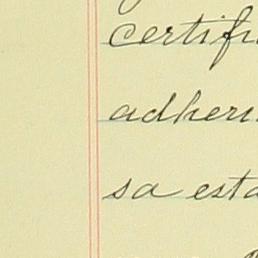 certifi
adheri
sa esta